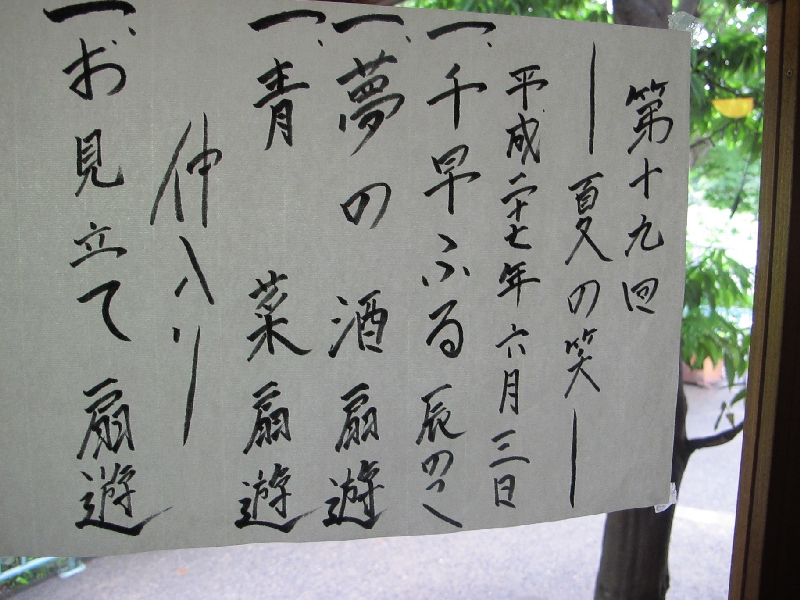 第十九回
―夏の笑―
平成二十七年六月三日
一、千早ふる 辰のこ
一、夢の酒 扇遊
一、青菜 扇遊
仲入り
一、お見立て 扇遊